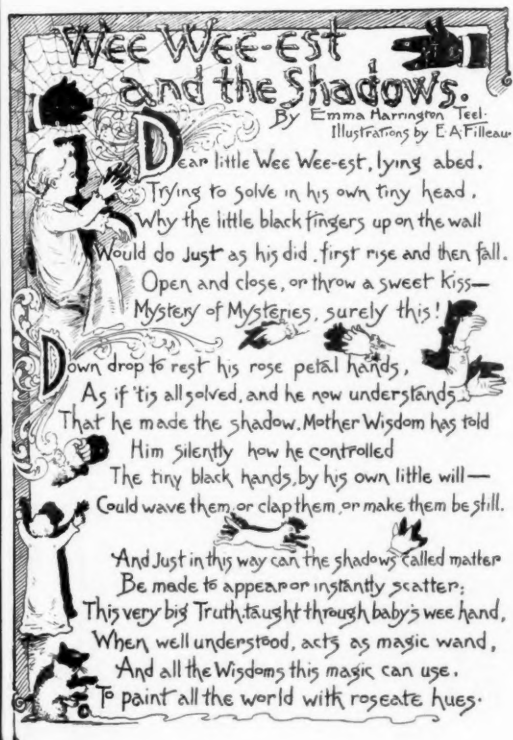 Wee Wee-est
and the Shadows.
By Emma Harrington Teel.
Illustrations by E.A. Filleau.
Dear little Wee Wee-est, lying abed.
Trying to solve in his own tiny head.
Why the little black fingers up on the wall
Would do Just as his did. first rise and then fall.
Open and close, or throw a sweet Kiss—
Mystery of Mysteries, surely this!
Down drop to rest his rose petal hands,
As if 'tis all solved, and he now understands
That he made the shadow. Mother Wisdom has told
Him silently how he controlled
The tiny black hands, by his own little will—
Could wave them, or clap them, or make them be still.
And Just in this way can the shadows called matter
Be made to appear or instantly scatter;
This very big Truth, taught through baby's wee hand,
When well understood, acts as magic wand,
And all the Wisdoms this magic can use.
To paint all the world with roseate hues.